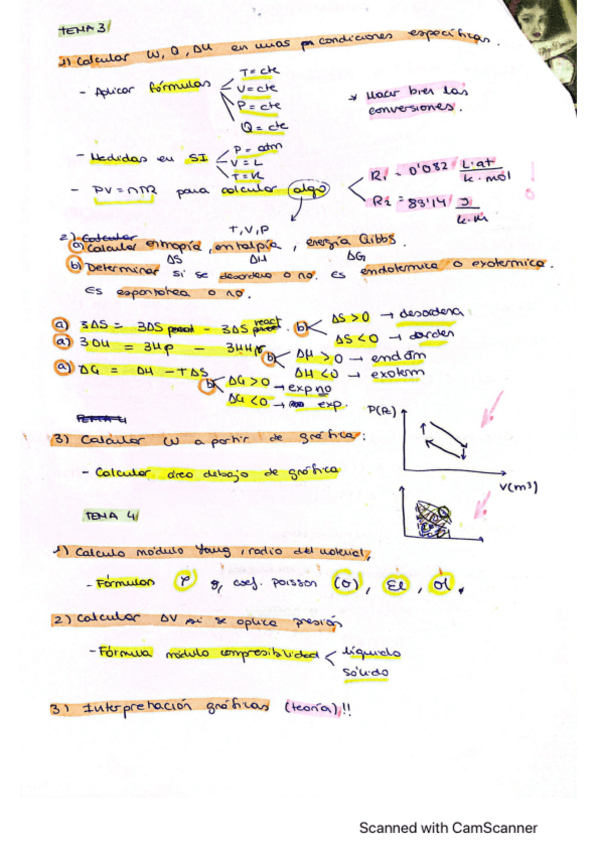 TEMA 3
1) Calcular W, Q, ΔU en unas condiciones específicas.
- Aplicar fórmulas
T = cte
V = cte
P = cte
Q = cte
* Hacer bien las
conversiones.
- Medidas en SI
P = atm
V = L
T = K
- PV = nRT para calcular algo
R1 = 0'082 L·at / k·mol
R2 = 83'14 J / k·M
!
T, V, P
2) Calcular
a) Calcular entropía, entalpía, energía Gibbs.
ΔS ΔH ΔG
b) Determinar si se desordena o no. es endotermica o exotermica.
Es espontánea o no.
a) 3ΔS = 3ΔS prod - 3ΔS react
b) ΔS > 0 → desordena
ΔS < 0 → dorden
a) 3ΔH = 3Hp - 3HHr
b) ΔH > 0 → endotm
ΔH < 0 → exoterm
a) ΔG = ΔH - TΔS
b) ΔG > 0 → exp no
ΔG < 0 → exp.
TEMA 4
3) Calcular W a partir de gráfica:
- Calcular área debajo de gráfica
P(Pa)
V(m³)
TEMA 4
1) Calculo módulo Young, radio del material,
- Fórmulas γ, coef. poisson (σ), εl, σl.
2) Calcular ΔV si se aplica presión
- Fórmula módulo compresibilidad
líquido
sólido
3) Interpretación gráficas (teoría)!!
Scanned with CamScanner